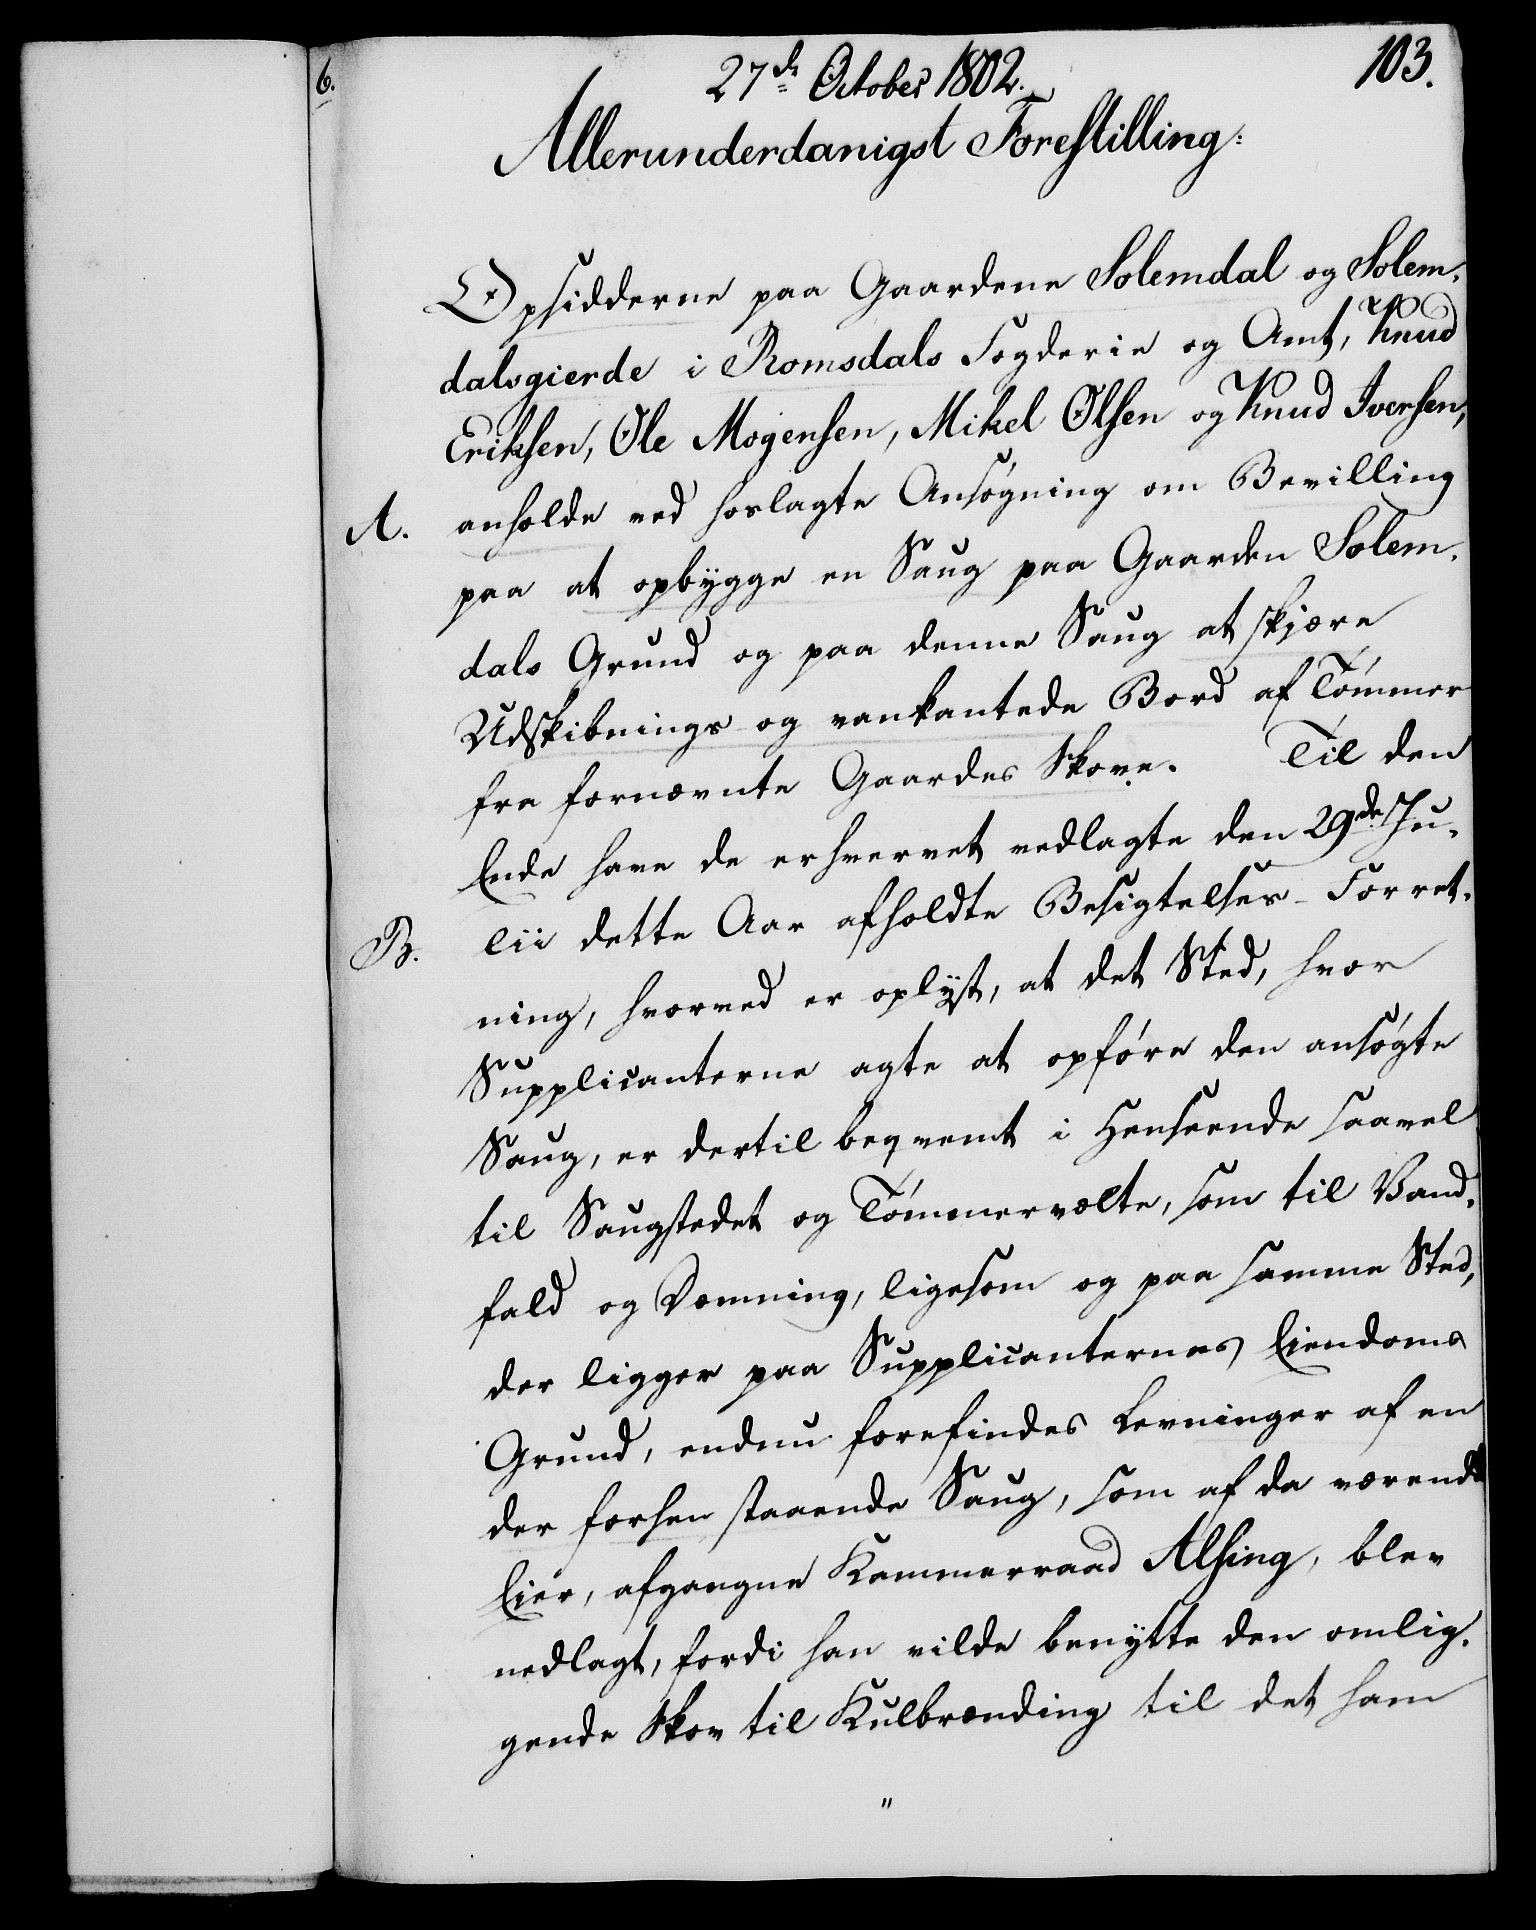 6.
27de October 1802.
103.
Allerunderdanigst Forestilling:
Opsidderne paa Gaardene Solemdal og Solem-
dalsgierde i Romsdals Fogderie og Amt, Knud
Eriksen, Ole Mogensen, Mikel Olsen og Knud Iversen,
A. anholde ved hoslagte Ansøgning om Bevilling
paa at opbygge en Saug paa Gaarden Solem-
dals Grund og paa denne Saug at skjære
Udskibnings- og vankantede Bord af Tømmer
fra fornævnte Gaardes Skove. Til den
Ende have de erhvervet vedlagte den 29de Ju-
B. lii dette Aar afholdte Besigtelses-Forret-
ning, hvorved er oplyst, at det Sted, hvor
Supplicanterne agte at opføre den ansøgte
Saug, er dertil beqvemt i Henseende saavel
til Saugstedet og Tømmervelte, som til Vand-
fald og Dæmning, ligesom og paa samme Sted,
der ligger paa Supplicanternes Eiendoms
Grund, endnu forefindes Levninger af en
der forhen staaende Saug, som af da værende
Eier, afgangne Kammerraad Alsing, blev
nedlagt, fordi han vilde benytte den omlig-
gende Skov til Kulbrænding til det ham
"